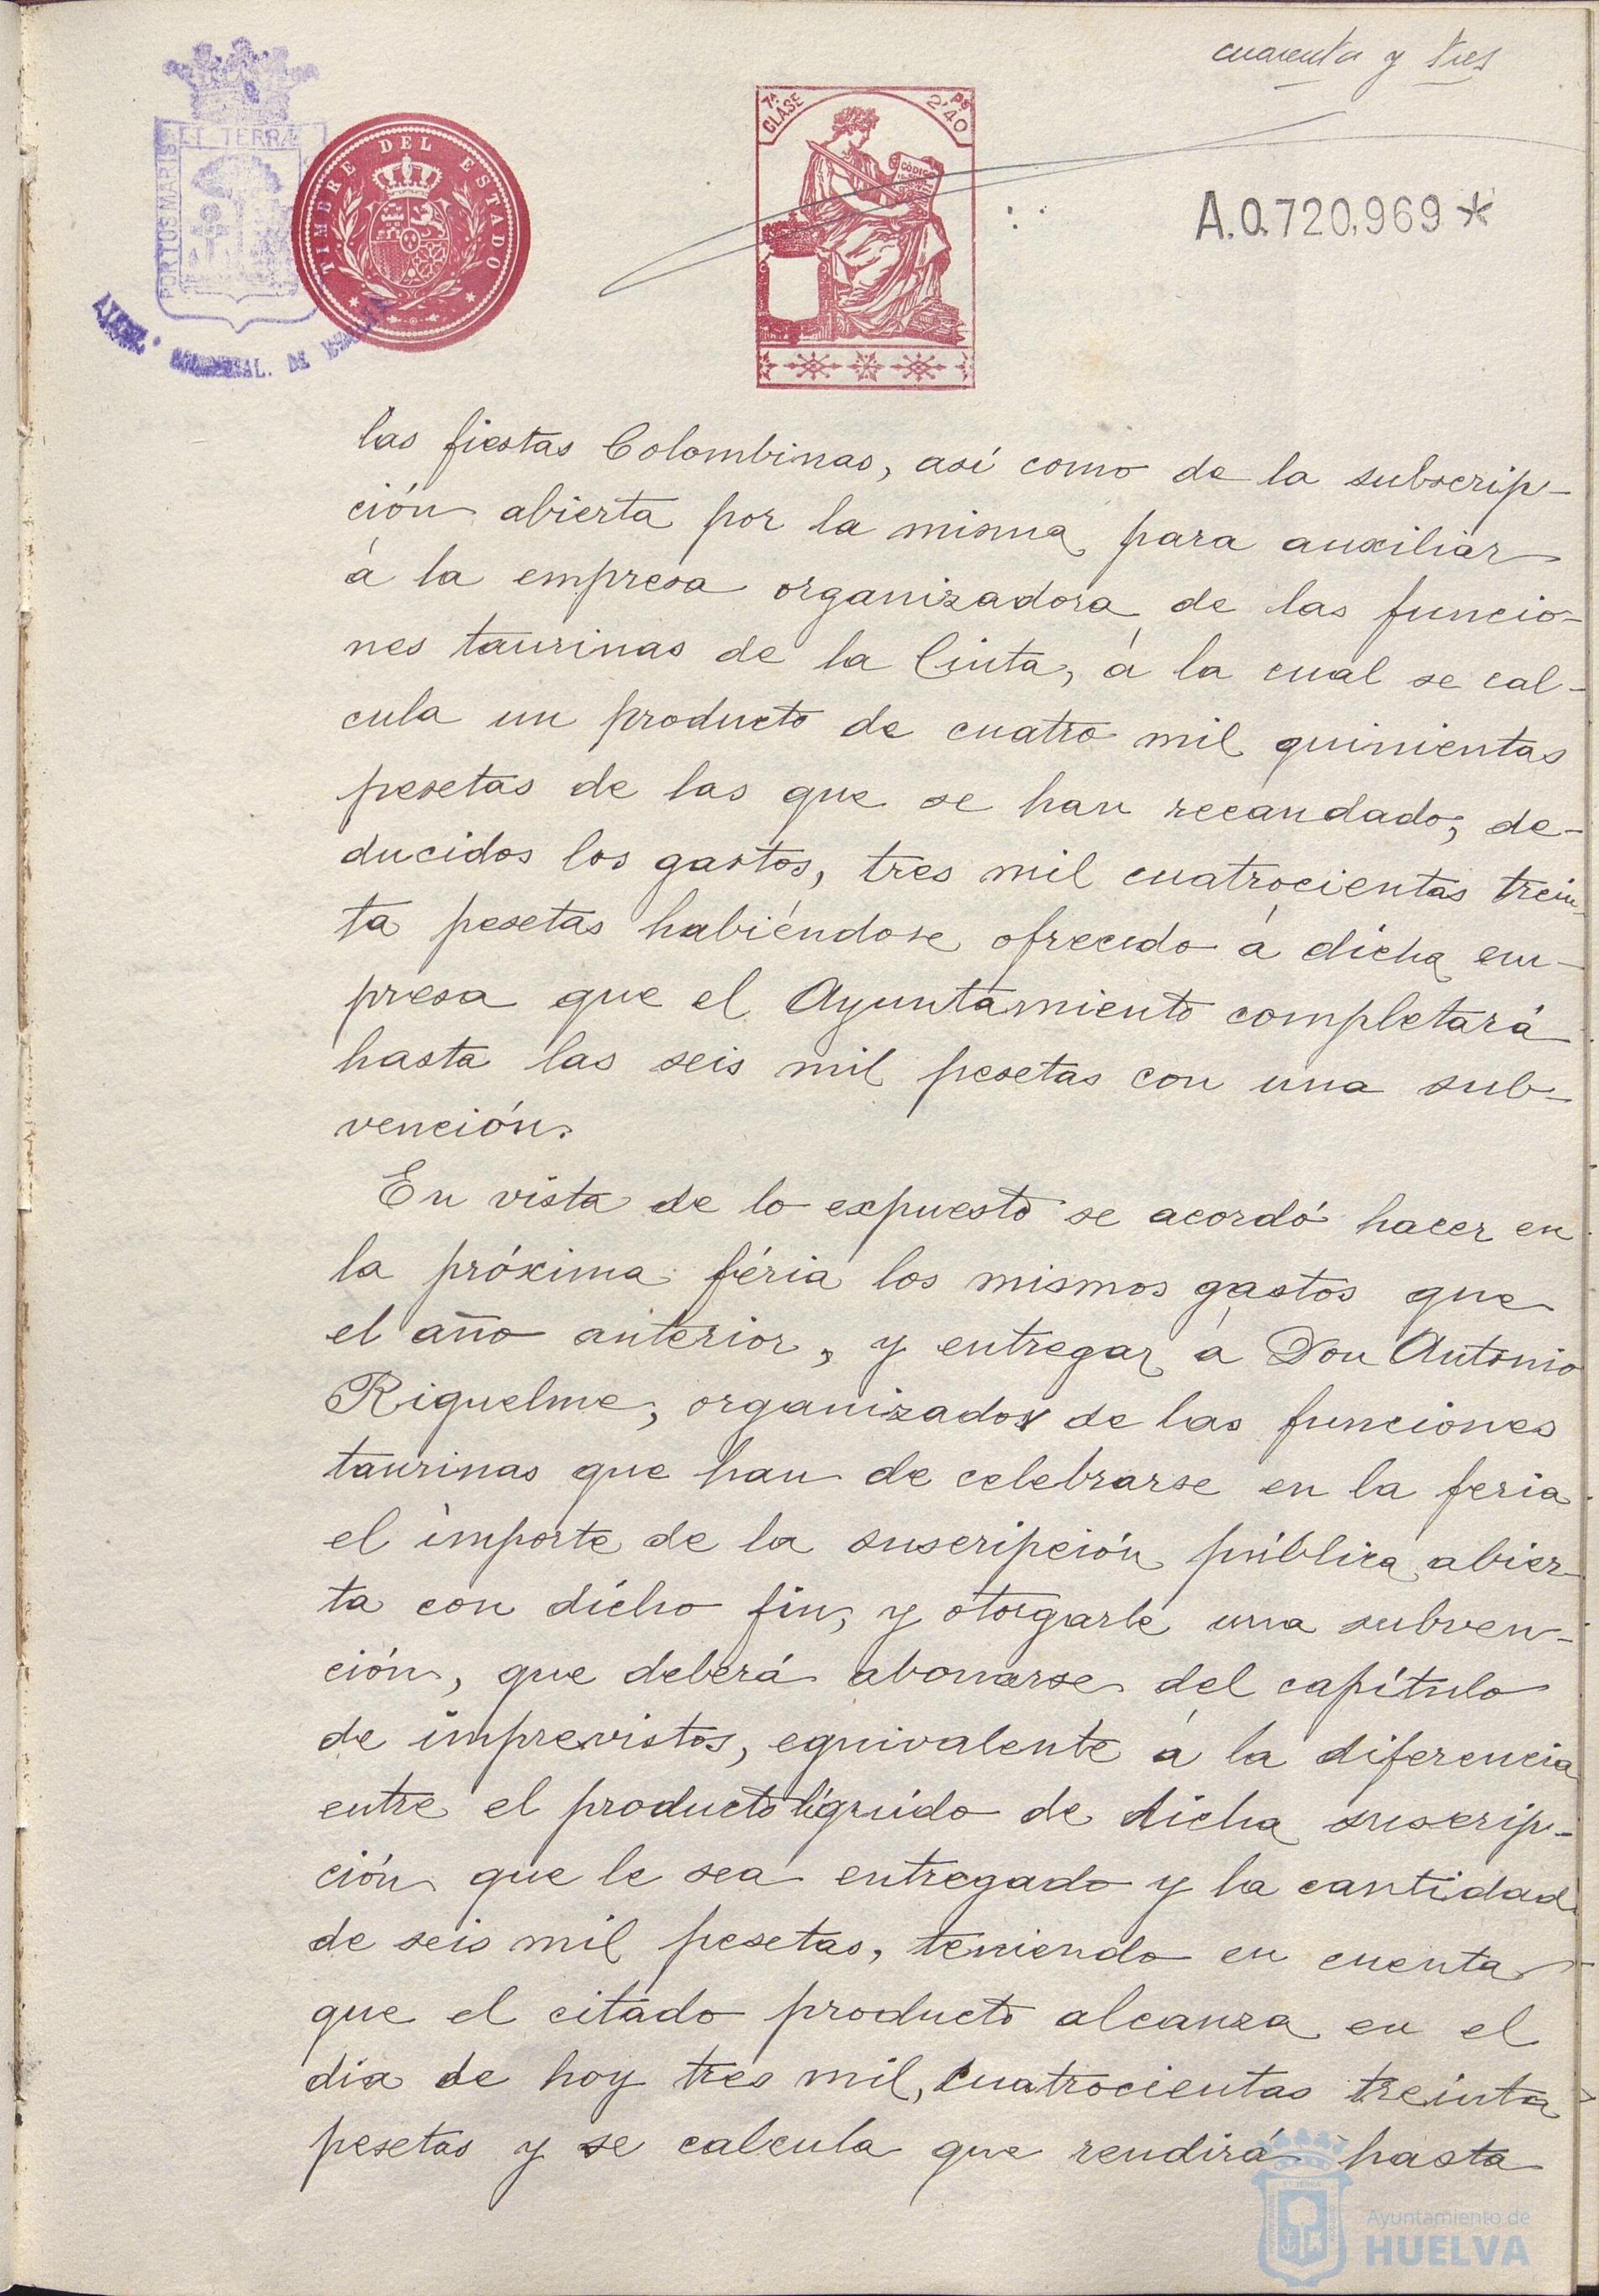 cuarenta y tres
ET TERRÆ
PORTUS MARIS
TIMBRE DEL ESTADO
7ª CLASE
2'40 PS
CÓDIGO
A.0.720,969*
las fiestas Colombinas, así como de la subscrip-
ción abierta por la misma para auxiliar
á la empresa organizadora de las funcio-
nes taurinas de la Cinta, á la cual se cal-
cula un producto de cuatro mil quinientas
pesetas de las que se han recaudado, de-
ducidos los gastos, tres mil cuatrocientas trein-
ta pesetas habiéndose ofrecido á dicha em-
presa que el Ayuntamiento completará
hasta las seis mil pesetas con una sub-
vención.
En vista de lo expuesto se acordó hacer en
la próxima féria los mismos gastos que
el año anterior, y entregar á Don Antonio
Riquelme, organizador de las funciones
taurinas que han de celebrarse en la feria
el importe de la suscripción pública abier-
ta con dicho fin, y otorgarle una subven-
ción, que deberá abonarse del capítulo
de imprevistos, equivalente á la diferencia
entre el producto líquido de dicha suscrip-
ción que le sea entregado y la cantidad
de seis mil pesetas, teniendo en cuenta
que el citado producto alcanza en el
dia de hoy tres mil, cuatrocientas treinta
pesetas y se calcula que rendirá hasta
Ayuntamiento de
HUELVA